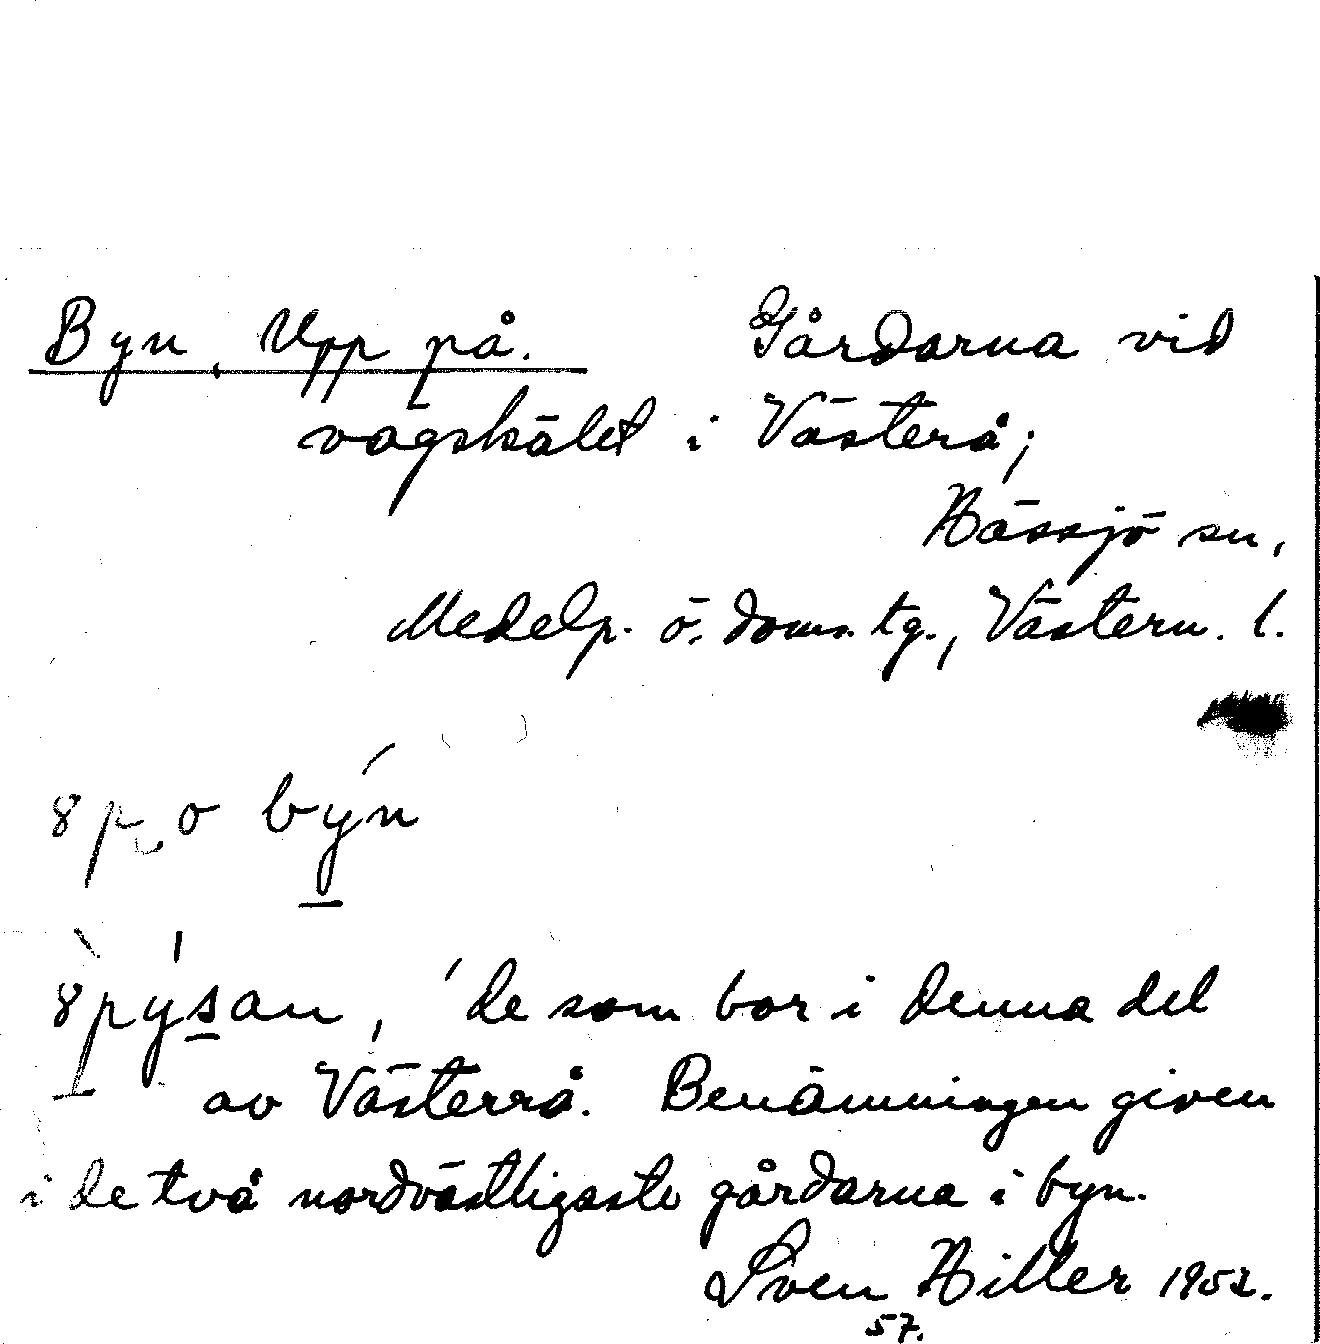 Byn, Upp på. Gårdarna vid
vägskälet i Västerå;
Hässjö sn,
Medelp. ö. doms. tg., Västern. l.
8p o býn
8pýsan, 'de som bor i denna del
av Västerrå. Benämningen given
i de två nordvästligaste gårdarna i byn.
Sven Hiller 1952.
57.